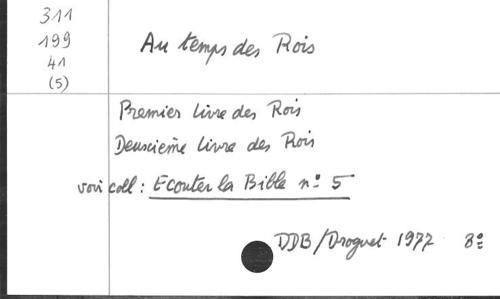 311
199
41
(5)
Au temps des Rois
Premier livre des Rois
Deuxième livre des Rois
voir coll : Ecouter la Bible n° 5
DDB/Droguet 1977 8°